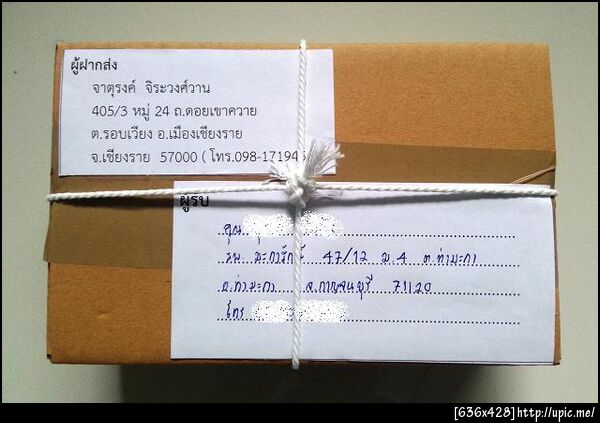 ผู้ฝากส่ง
จาตุรงค์ จิระวงศ์วาน
405/3 หมู่ 24 ถ.ดอยเขาควาย
ต.รอบเวียง อ.เมืองเชียงราย
จ.เชียงราย 57000 ( โทร.098-17194
ผู้รับ
คุณ
รพ. มะการักษ์ 47/12 ม.4 ต.ท่ามะกา
อ.ท่ามะกา จ.กาญจนบุรี 71120
โทร
[636x428]http://upic.me/